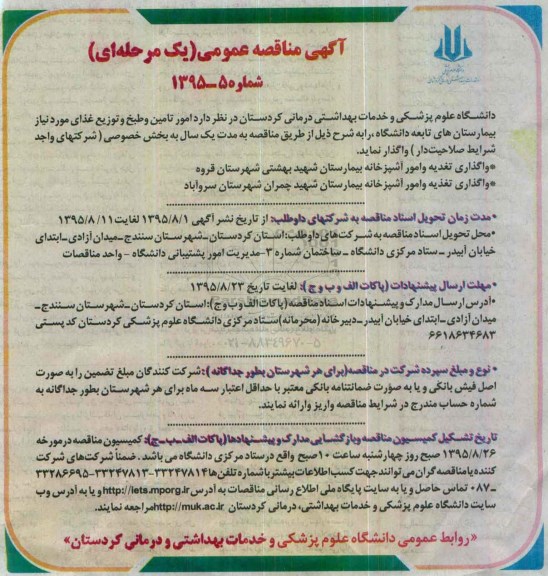 آگهی مناقصه عمومی(یک مرحله‌ای)
شماره۵-۱۳۹۵
دانشگاه علوم پزشکی و خدمات بهداشتی درمانی کردستان در نظر دارد امور تامین وطبخ و توزیع غذای مورد نیاز
بیمارستان های تابعه دانشگاه ،رابه شرح ذیل از طریق مناقصه به مدت یک سال به بخش خصوصی ( شرکتهای واجد
شرایط صلاحیت‌دار ) واگذار نماید.
*واگذاری تغذیه وامور آشپزخانه بیمارستان شهید بهشتی شهرستان قروه
*واگذاری تغذیه وامور آشپزخانه بیمارستان شهید چمران شهرستان سروآباد
• مدت زمان تحویل اسناد مناقصه به شرکتهای داوطلب: از تاریخ نشر آگهی ۱۳۹۵/۸/۱ لغایت ۱۳۹۵/۸/۱۱
• محل تحویل اسناد مناقصه به شرکت‌های داوطلب: استان کردستان _ شهرستان سنندج_میدان آزادی_ابتدای
خیابان آبیدر _ ستاد مرکزی دانشگاه _ ساختمان شماره ۳-مدیریت امور پشتیبانی دانشگاه - واحد مناقصات
• مهلت ارسال پیشنهادات (پاکات الف و ب و ج ): لغایت تاریخ ۱۳۹۵/۸/۲۳
• آدرس ارسال مدارک و پیشنهادات اسناد مناقصه (پاکات الف و ب و ج): استان کردستان_شهرستان سنندج_
میدان آزادی _ابتدای خیابان آبیدر_دبیرخانه (محرمانه)ستاد مرکزی دانشگاه علوم پزشکی کردستان کد پستی
۶۶۱۸۶۳۴۶۸۳
• نوع و مبلغ سپرده شرکت در مناقصه(برای هر شهرستان بطور جداگانه ) : شرکت کنندگان مبلغ تضمین را به صورت
اصل فیش بانگی و یا به صورت ضمانتنامه بانکی معتبر با حداقل اعتبار سه ماه برای هر شهرستان بطور جداگانه به
شماره حساب مندرج در شرایط مناقصه واریز وارائه نمایند.
تاریخ تشکیل کمیسیون مناقصه وبازگشایی مدارک و پیشنهادها(پاکات الف_ب_ج): کمیسیون مناقصه در مورخه
۱۳۹۵/۸/۲۶ صبح روز چهارشنبه ساعت ۱۰ صبح واقع در ستاد مرکزی دانشگاه می باشد . ضمناً شرکت‌های شرکت
کننده یا مناقصه گران می توانند جهت کسب اطلاعات بیشتر با شماره تلفن‌ها ۳۳۲۴۷۸۱۴-۳۳۲۴۷۸۱۳-۳۳۲۸۶۶۹۵
_۰۸۷ تماس حاصل و یا به سایت پایگاه ملی اطلاع رسانی مناقصات به آدرس http://iets.mporg.ir و یا به آدرس وب
سایت دانشگاه علوم پزشکی و خدمات بهداشتی، درمانی کردستان http://muk.ac.ir مراجعه نمایند.
«روابط عمومی دانشگاه علوم پزشکی و خدمات بهداشتی و درمانی کردستان»